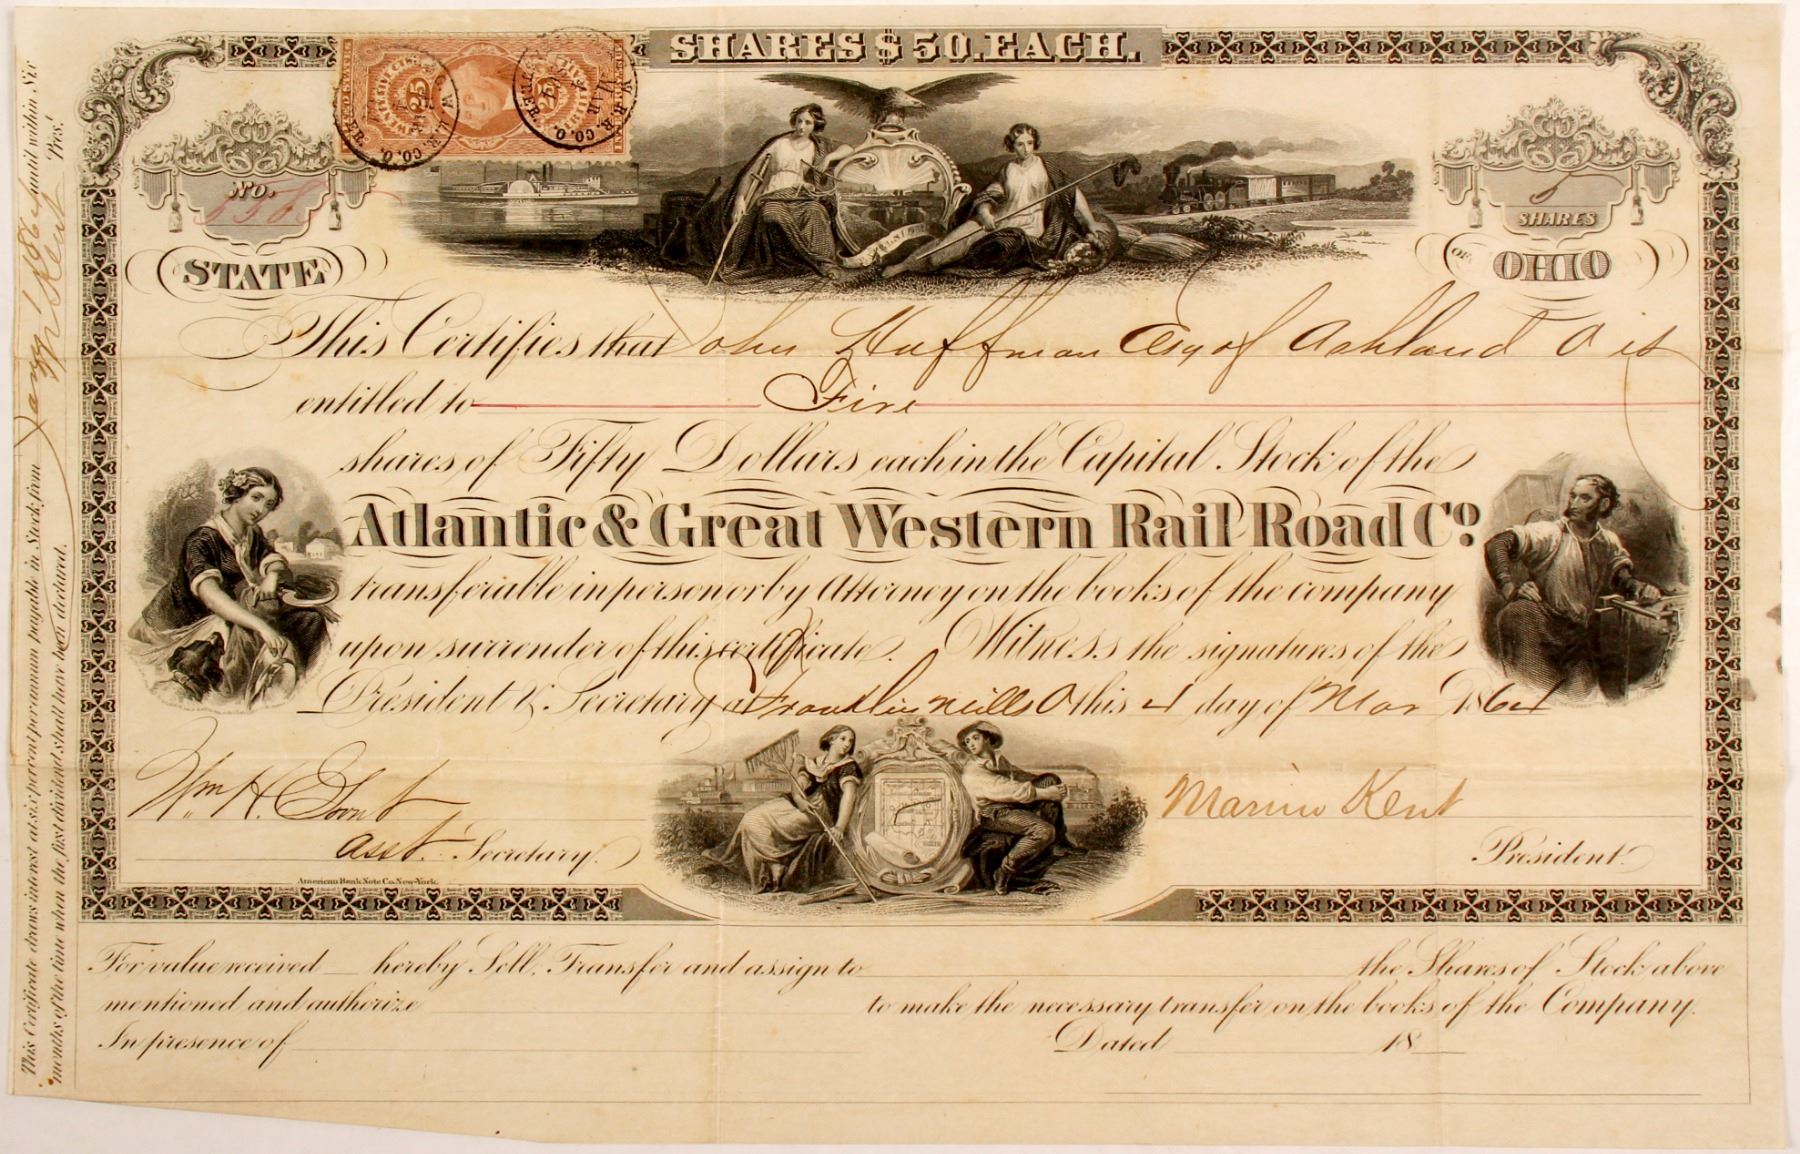 SHARES $50. EACH.
25
25
No.
5
SHARES
STATE OF OHIO
This Certifies that John Huffman Esq of Ashland O is
entitled to Five
shares of Fifty Dollars each in the Capital Stock of the
Atlantic & Great Western Rail Road Co.
transferable in person or by Attorney on the books of the company
upon surrender of this certificate. Witness the signatures of the
President & Secretary at Franklin Mills O this 4 day of Mar 1864
Wm H.
Marvin Kent
asst. Secretary.
President.
American Bank Note Co. New-York.
For value received hereby Sell, Transfer and assign to the Shares of Stock above
mentioned and authorize to make the necessary transfer on the books of the Company.
In presence of Dated 18
This Certificate draws interest at six per cent per annum payable in Stock from Jany 1 186 until within Six
months of the time when the first dividend shall have been declared. M Kent Pres.